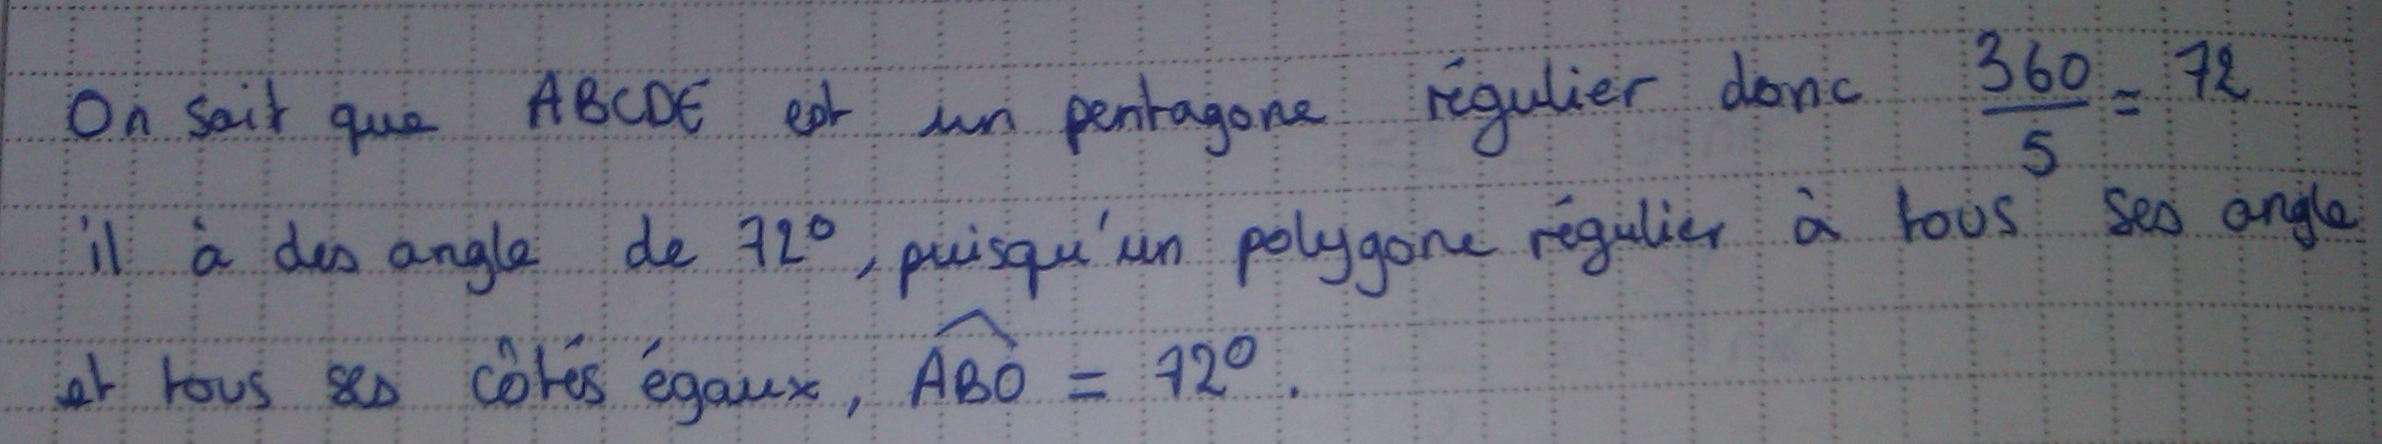 On sait que ABCDE est un pentagone régulier donc 360/5 = 72
il à des angle de 72°, puisqu'un polygone régulier à tous ses angle
et tous ses côtés égaux, ABO = 72°.